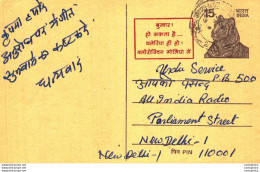 कृपया हमारे
धन्यवाद
बुखार!
हो सकता है...
मलेरिया ही हो-
क्लोरोक्विन गोलियां लें
15
भारत
INDIA
Urdu Service
आपकी पसन्द P.B 500
All India Radio
Parliament Street
New Delhi-1
New Delhi-1 पिन PIN 110001